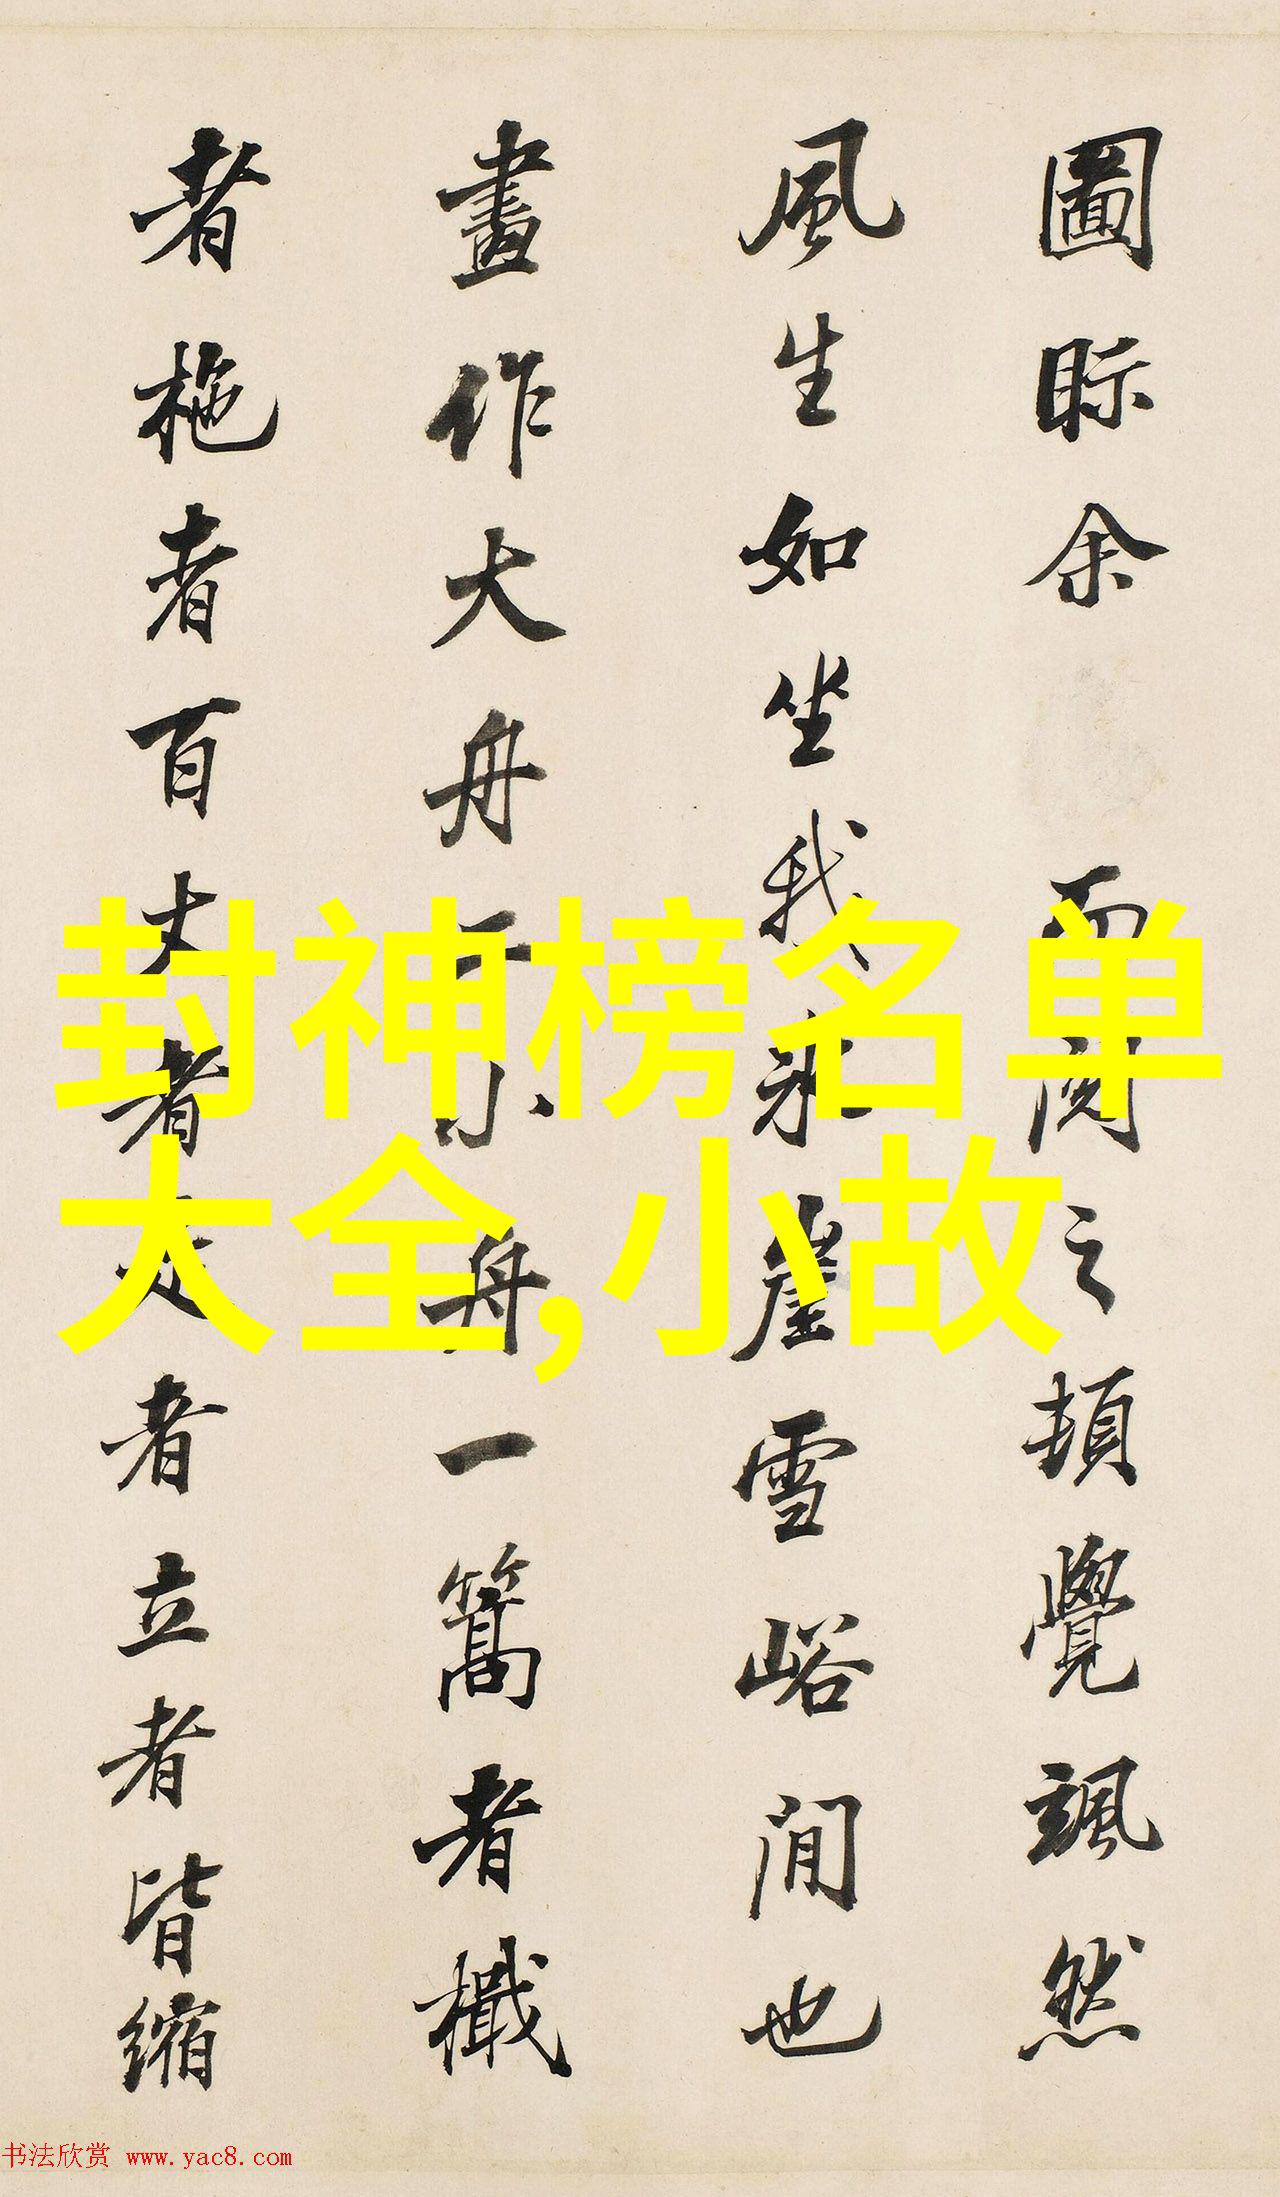 圖眎余 而閱之頓覺颯然
風生如坐我冰崖雪峪間也
畫作大舟一小舟一篙者檝
者柂者百丈者走者立者皆縮
封神榜名单
大全,小故
书法欣赏 www.yac8.com